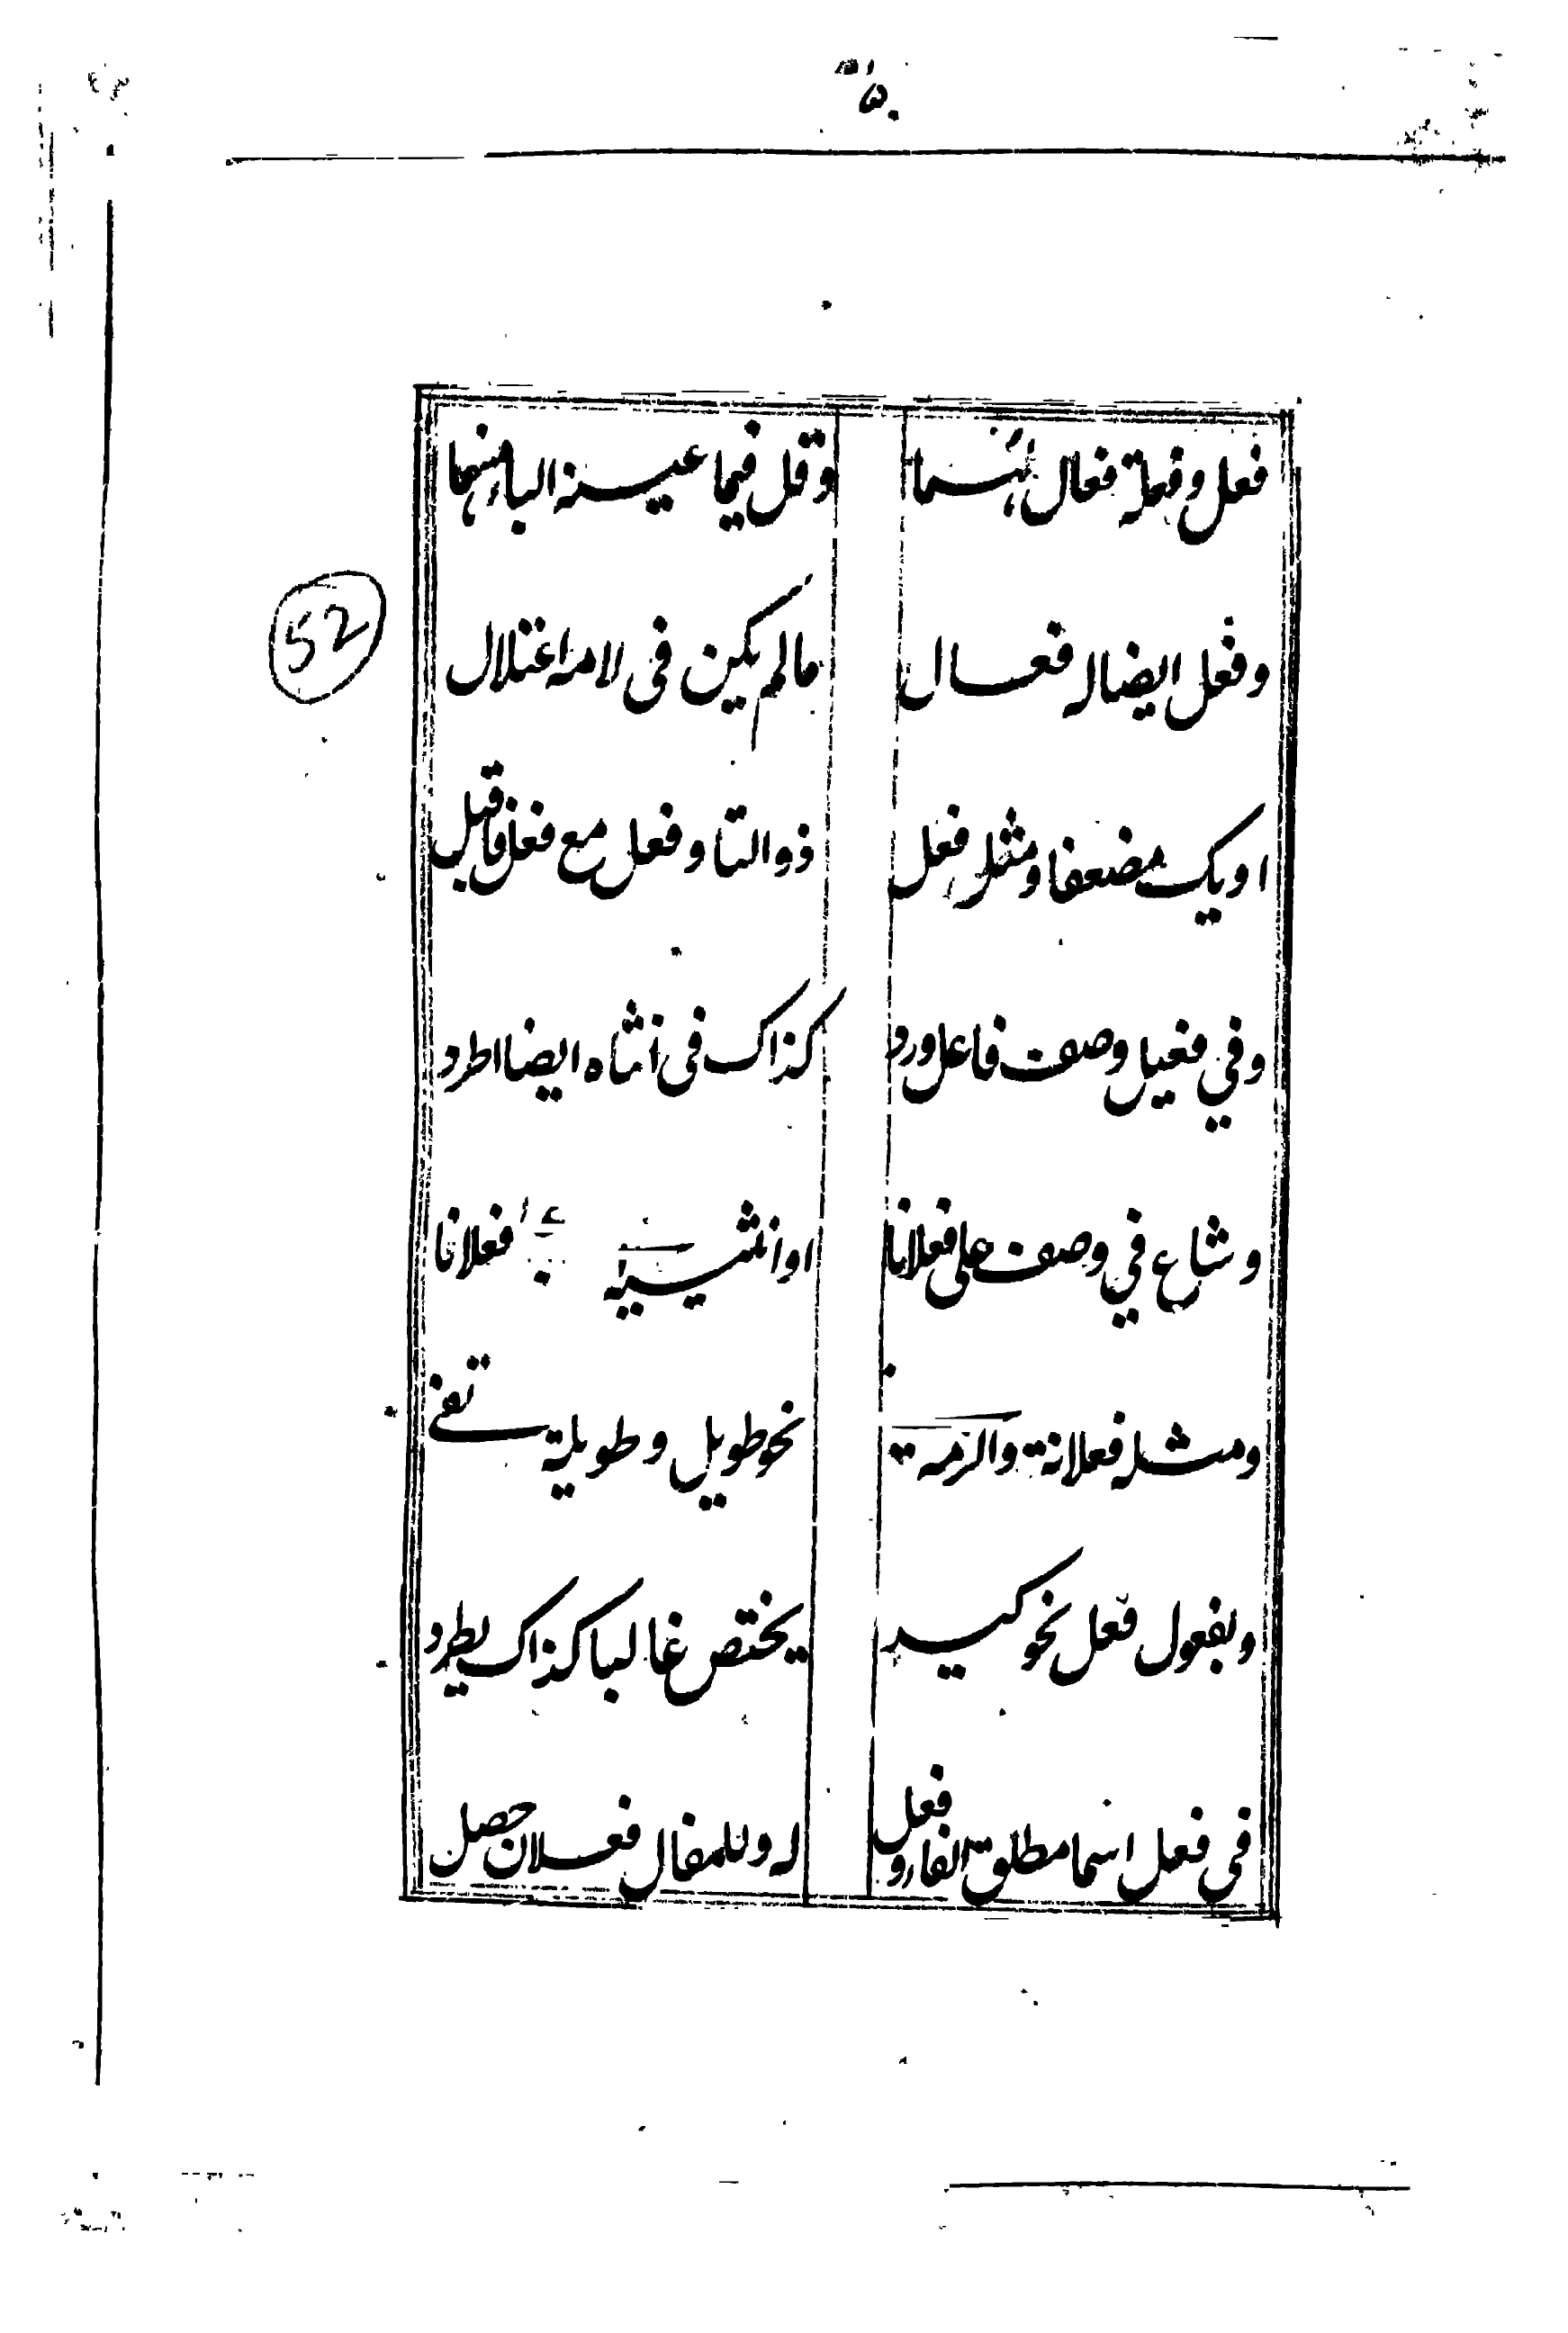 فعل وفعلة فعال لهما وقل فيما عينه اليا منهما
52
وفعل ايضا له فعال ما لم يكن في لامه اعتلال
او يك مضعفا ومثل فعل ذو التا وفعل مع فعل فاقبل
وفي فعيل وصف فاعل ورد كذاك في انثاه ايضا اطرد
وشاع في وصف على فعلانا او انثييه فعلانا
ومثله فعلانة والزمه نحو طويل وطويلة تفي
وبفعول فعل نحو كبد يختص غالبا كذاك يطرد
في فعل اسما مطلق الفا وفعل له وللفعال فعلان حصل